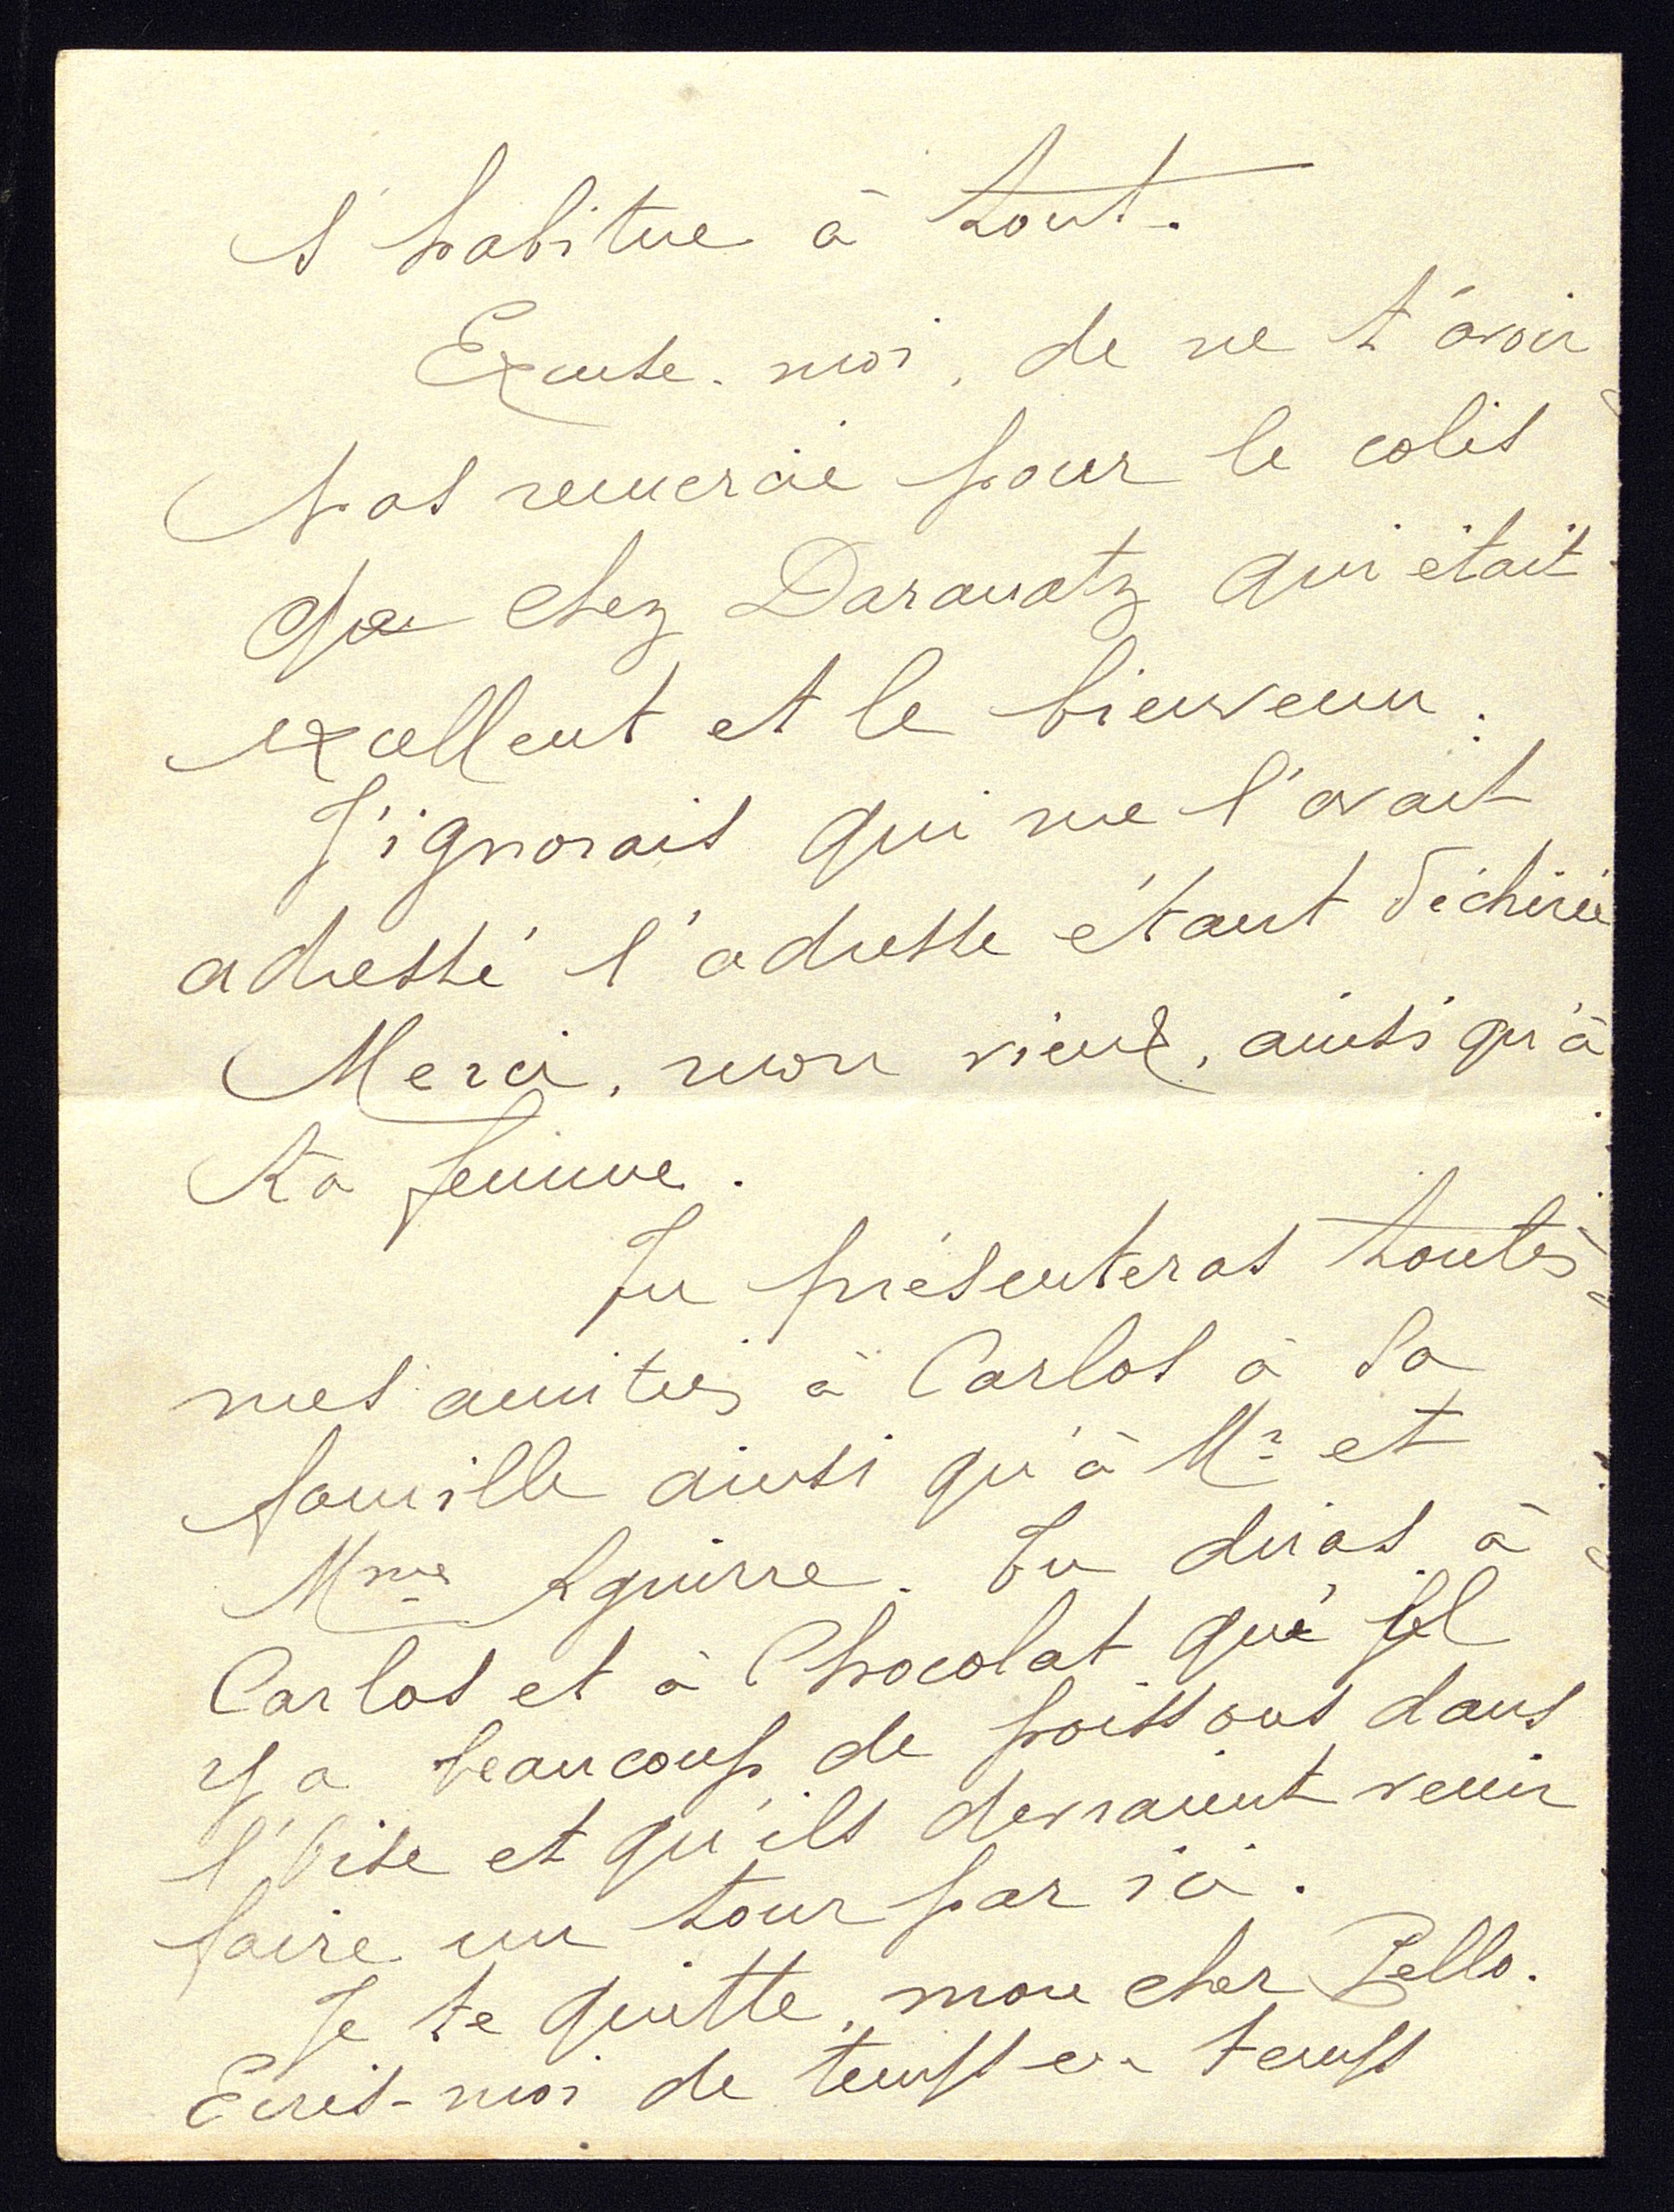 s'habitue à tout.
Excuse-moi, de ne t'avoir
pas remercié pour le colis
de chez Daranatz qui était
excellent et le bienvenu.
J'ignorais qui me l'avait
adressé l'adresse étant déchirée
Merci, mon vieux, ainsi qu'à
ta femme.
Tu présenteras toutes
mes amitiés à Carlos à sa
famille ainsi qu'à Mr et
Mme Aguirre. Tu diras à
Carlos et à Chocolat qu'il
y a beaucoup de poissons dans
l'Oise et qu'ils devraient venir
faire un tour par ici.
Je te quitte, mon cher Pello.
Ecris-moi de temps en temps